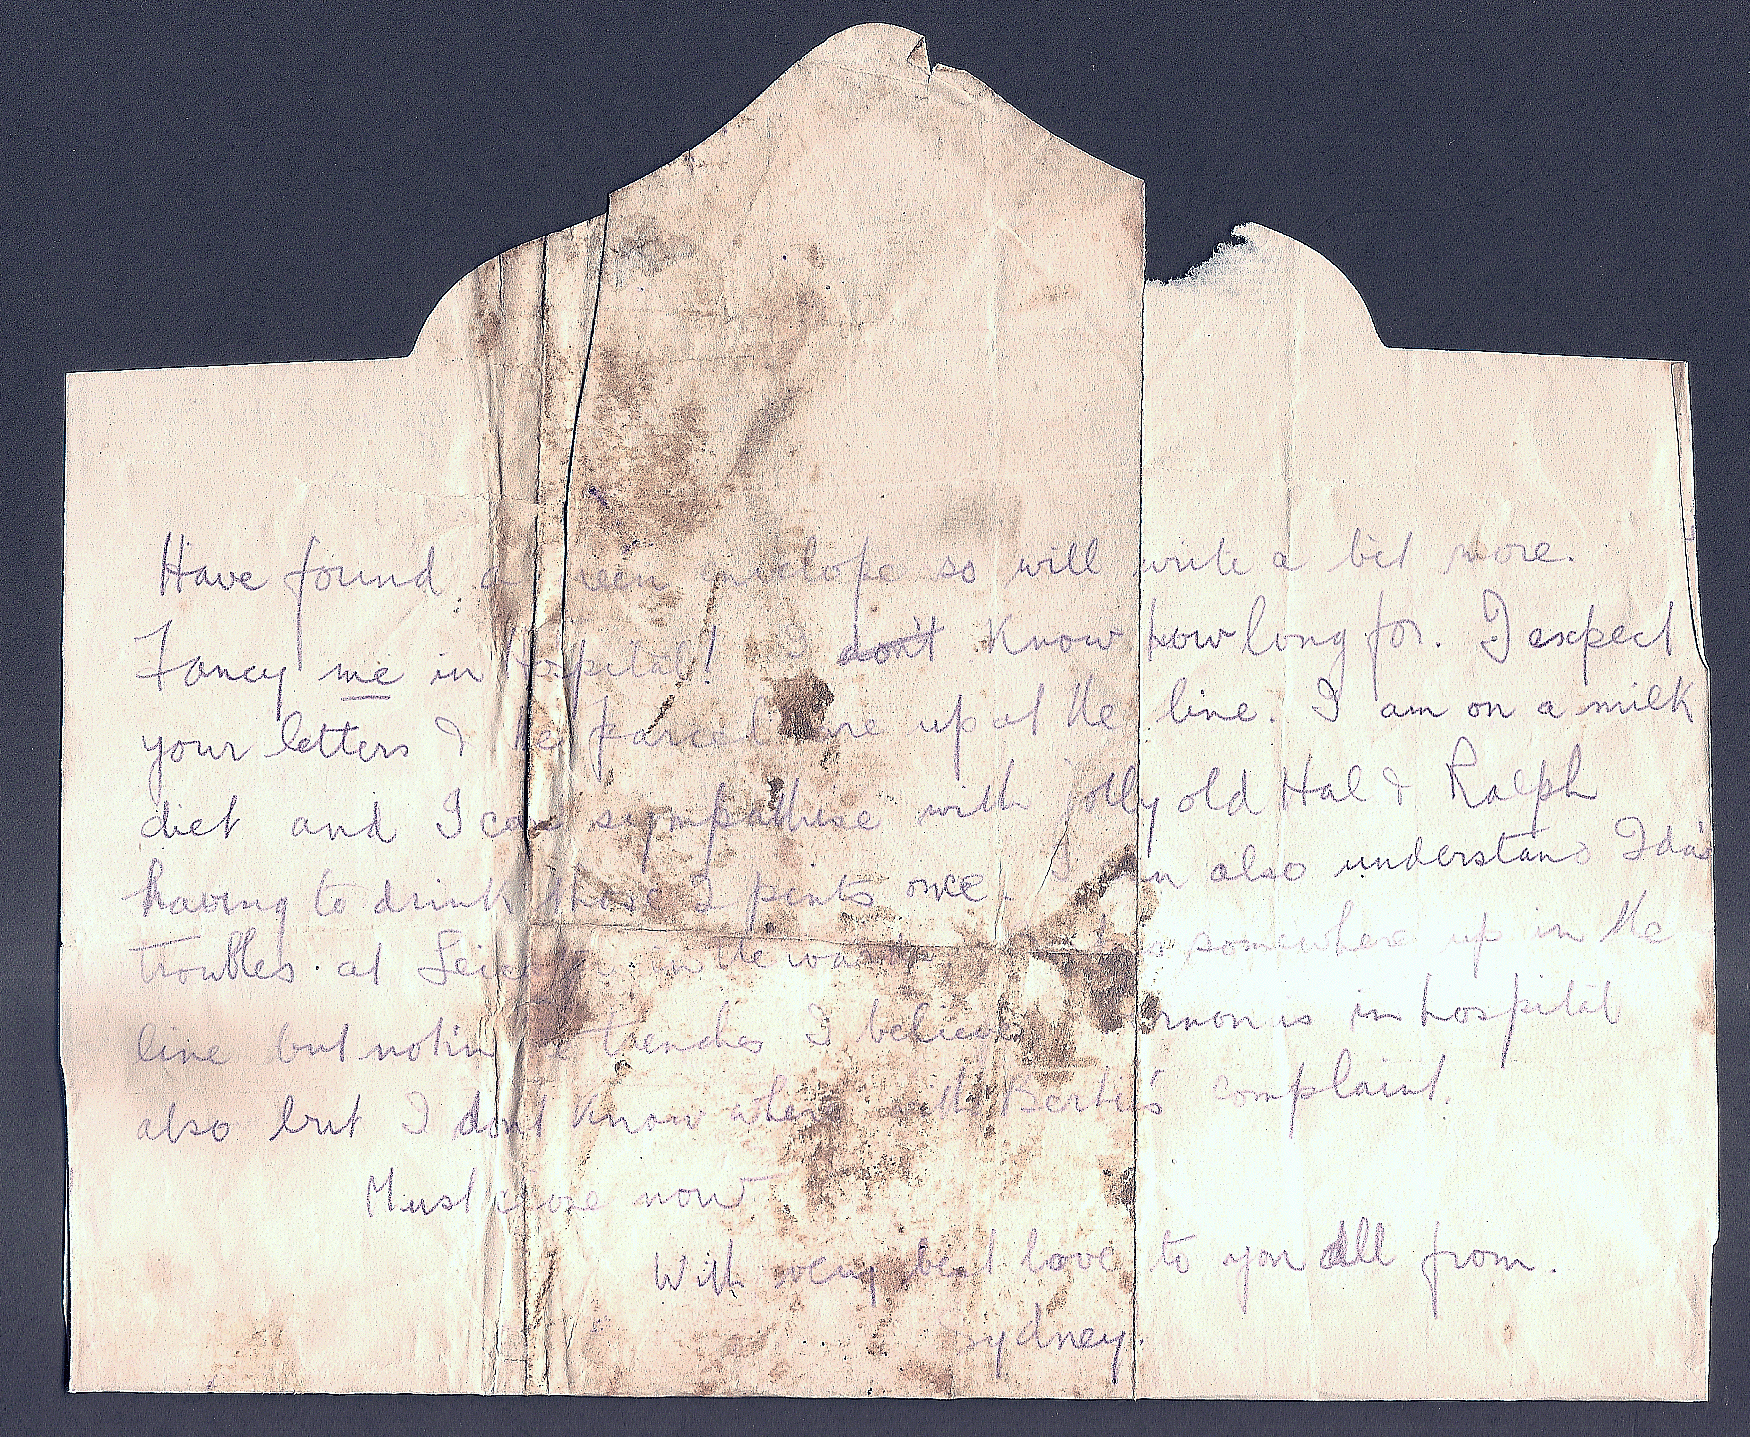 Have found a green envelope so will write a bit more.
Fancy me in hospital! I don't know how long for. I expect
your letters & the parcel are up at the line. I am on a milk
diet and I can sympathise with jolly old Hal & Ralph
having to drink those 2 pints once. can also understand Ida's
troubles. at in the somewhere up in the
line but not in the trenches I believe is in hospital
also but I don't know where with Bertie's complaint.
Must close now
With very best love to you all from.
Sydney.